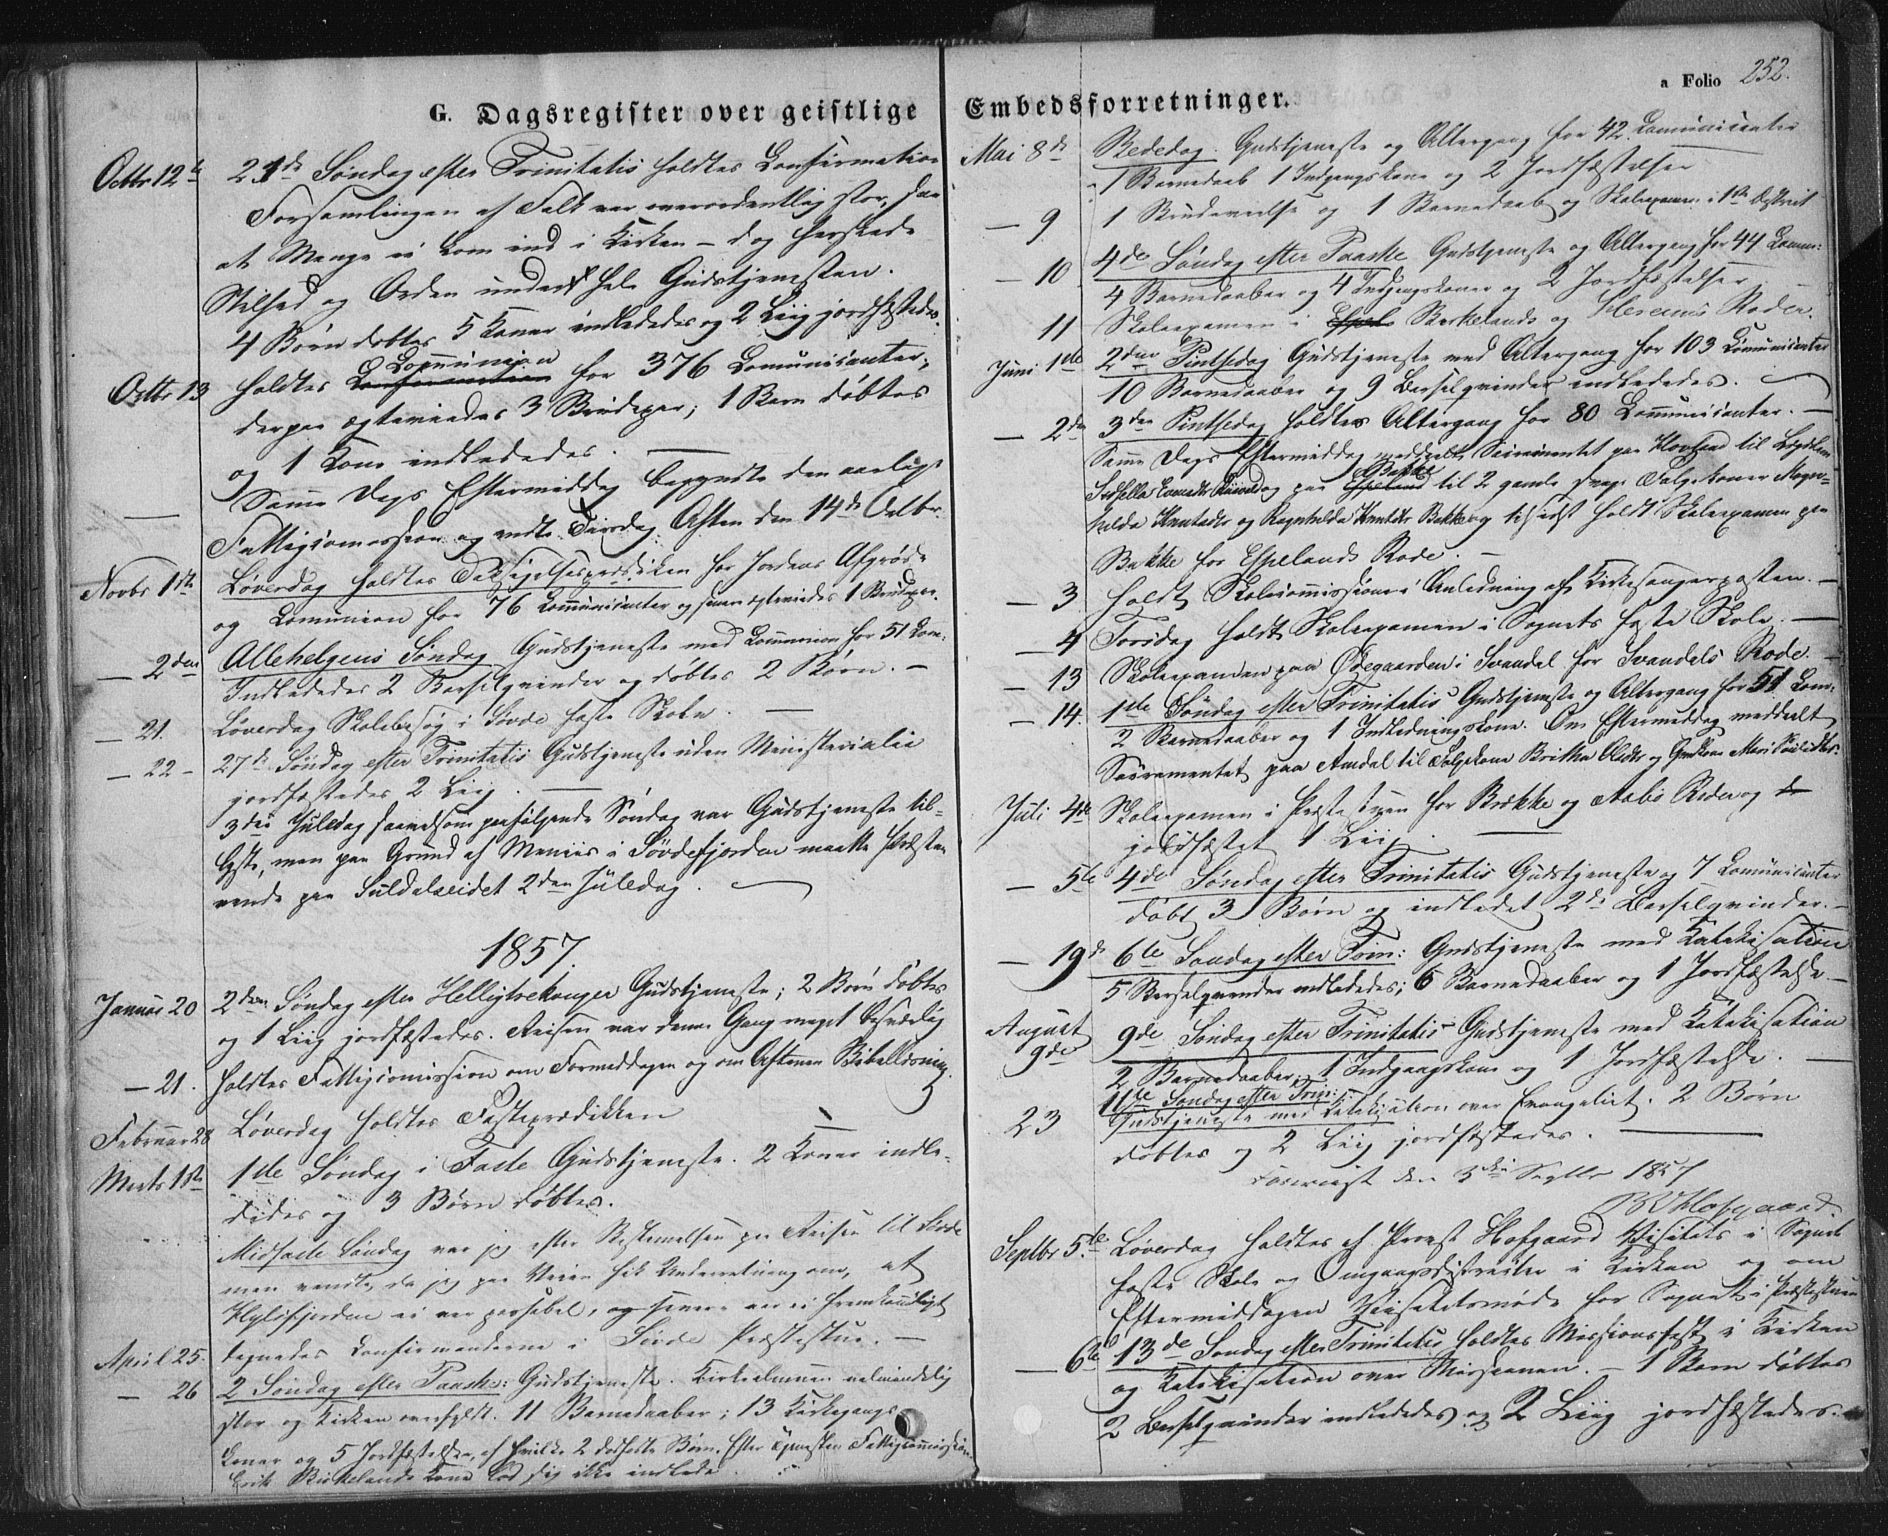 G. Dagsregister over geistlige
Octbr 12te 21de Søndag efter Trinitatis holdtes Confirmation
Forsamlingen af Folk var overordentlig stor, saa
at Mange ei kom ind i Kirken – dog herskede
Stilhed og Orden under hele Gudstjenesten.
4 Børn døbtes 5 Koner indlededes og 2 Liig jordfæstedes.
Octbr 13 holdtes Communion for 376 Comunicanter;
derpaa egteviedes 3 Brudepar; 1 Barn døbtes
og 1 Kone indlededes.
Samme Dags Eftermiddag begyndte den aarlige
Fattigcomission og endte Tirsdag Aften den 14de Octbr.
Novbr 1ste Løverdag holdtes Taksigelsesprædiken for Jordens Afgrøde
og Comunion for 76 Communicanter og saa egteviedes 1 Brudepar.
2den Allehelgens Søndag Gudstjeneste med Communion for 51 Com:
Indlededes 2 Barselqvinder og døbtes 2 Børn. –
21. Løverdag Skolebesøg i Søvde faste Skole. —
22 – 27de Søndag efter Trinitatis Gudstjeneste uden Ministerialia
jordfæstedes 2 Liig. —
3die Juledag saavelsom paafølgende Søndag var Gudstjeneste til-
lyst, men paa Grund af Meniis i Søvdefjorden maatte Præsten
vende paa Suldalseidet 2den Juledag.
1857.
Januar 20 2den Søndag efter Helligtrekonger Gudstjeneste; 2 Børn døbtes
og 1 Liig jordfæstedes. Reisen var denne Gang meget besværlig
– 21. holdtes Fattigcomission om Formiddagen og om Aftenen Bibellæsning.
Februar 28 Løverdag holdtes Fasteprædikken
Marts 1ste 1ste Søndag i Faste Gudstjeneste. 2 Koner indle-
dedes og 3 Børn døbtes.
Midfaste Søndag var jeg efter Bestemmelsen paa Reisen til Søvde
men vendte, da jeg paa Veien fik Underretning om, at
Hylsfjorden ei var passabel, og senere var ei fremkommeligt
April 25. tegnedes Confirmanderne i Søvde Præstestue. –
– 26 2 Søndag efter Paaske: Gudstjeneste. Kirkealmuen ualmindelig
stor og Kirken overfyldt. 11 Barnedaaber; 13 Kirkegangs
Koner og 5 Jordfæstelser, af hvilke 2 dødfødte Børn. Efter Tjenesten Fattigcommission
Erik Birkelands Kone lod sig ikke indlede.
Embedsforretninger.
a Folio 252.
Mai 8de Bededag. Gudstjeneste og Altergang for 42 Comunicanter
1 Barnedaab 1 Indgangskone og 2 Jordfæstelser
– 9 1 Brudevielse og 1 Barnedaab og Skoleexamen i 1ste District
– 10 4de Søndag efter Paaske Gudstjeneste og Altergang for 44 Comm:
4 Barnedaaber og 4 Indgangskoner og 2 Jordfæstelser
11 Skoleexamen i Birkelands og Hereims Roder.
Juni 1ste 2den Pintsedag Gudstjeneste med Altergang for 103 Comunicanter
10 Barnedaaber og 9 Barselqvinder indlededes.
– 2den 3die Pintsedag holdtes Altergang for 80 Communicanter. –
Samme Dags Eftermiddag meddeelt Sacramentet paa Hovland til
og paa Bakke til 2 gamle svage Folgekoner Magn-
hilda Knutsdtr og Ragnhilda Knutsdtr Bakke og tilsidst holdt Skoleexamen paa
Bakke for Espelands Rode. –
– 3 holdt Skolecomission i Anledning af Kirkesangerposten. –
– 4 Torsdag holdt Skoleexamen i Sognets faste Skole. –
– 13 Skoleexamen paa Ødegaarden i Svandal for Svandals Rode.
– 14. 1ste Søndag efter Trinitatis Gudstjeneste og Altergang for 51 Com:
2 Barnedaaber og 1 Indledningskone. Om Eftermiddag meddeelt
Sacramentet paa Amdal til Folgekone Britha Olsdtr og Gmlkone Mari
Juli 4de Skoleexamen i Præstestuen for Bakke og Aabø Roder og
jordfæstet 1 Liig. —
– 5te 4de Søndag efter Trinitatis Gudstjeneste og 7 Comunicanter
døbt 3 Børn og indledet 2de Barselqvinder.
– 19de 6te Søndag efter Trin: Gudstjeneste med Katekisation
5 Barselqvinder indlededes; 6 Barnedaaber og 1 Jordfæstelse –
August 9de 9de Søndag efter Trinitatis Gudstjeneste med Katekisation
2 Barnedaaber, 1 Indgangskone og 1 Jordfæstelse. —
11te Søndag efter Trin:
23 Gudstjeneste med Katekisation over Evangeliet. 2 Børn
døbtes og 2 Liig jordfæstedes. —
Foreviist den 5te Septbr 1857
Hofgaard.
Septbr 5te Løverdag holdtes af Provst Hofgaard Visitats i Sognets
faste Skole og Omgangsdistricter i Kirken og om
Eftermiddagen Visitatsmøde for Sognet i Præstestuen
– 6te 13de Søndag efter Trinitatis holdtes Missionsfest i Kirken
og Katekisation over Missionen. – 1 Barn døbtes
2 Barselqvinder indlededes og 2 Liig jordfæstedes. –